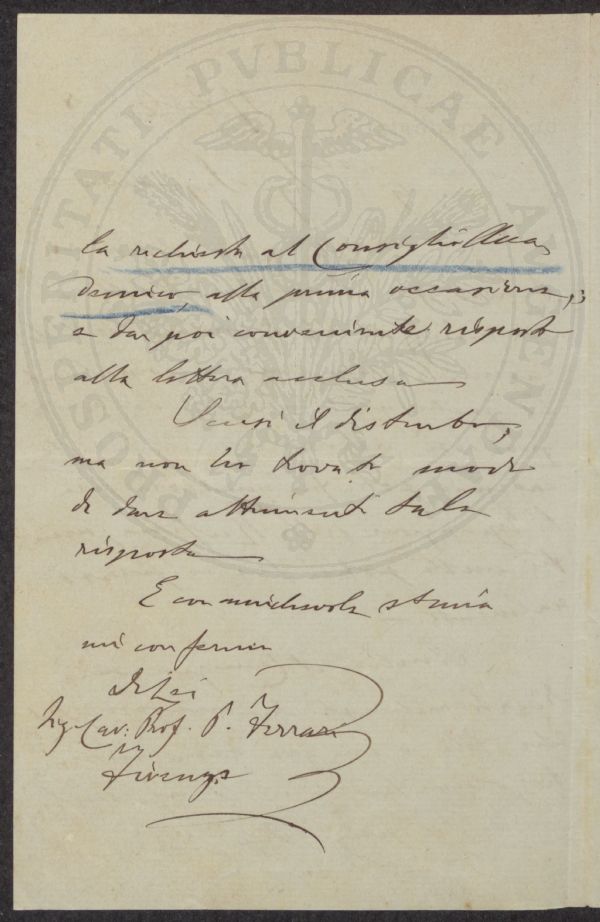 PROSPERITATI PVBLICAE AVGENDAE
la richiesta al Consiglio Acca
demico, alla prima occasione,
e dar poi conveniente risposta
alla lettera acclusa
Scusi il disturbo,
ma non ho trovato modo
di dare altrimenti tale
risposta
E con amichevole stima
mi confermo
di Lei
Ing. Cav: Prof. P. Ferrari
Firenze